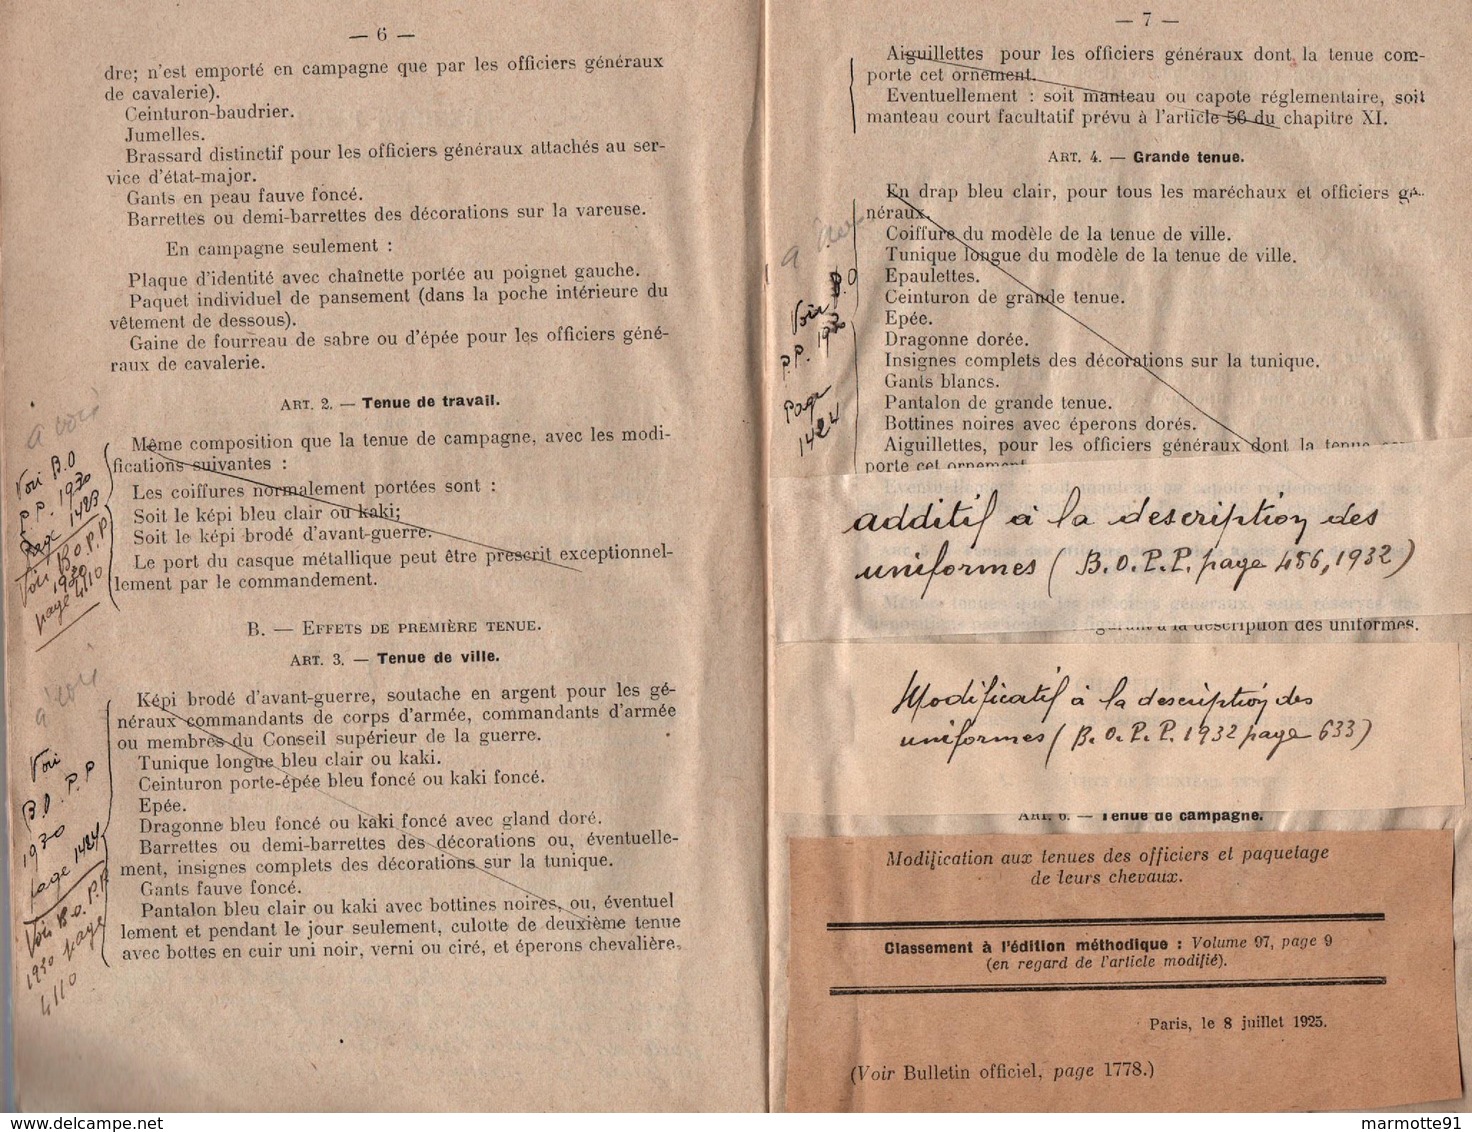 — 6 —
dre; n'est emporté en campagne que par les officiers généraux
de cavalerie).
Ceinturon-baudrier.
Jumelles.
Brassard distinctif pour les officiers généraux attachés au ser-
vice d'état-major.
Gants en peau fauve foncé.
Barrettes ou demi-barrettes des décorations sur la vareuse.
En campagne seulement :
Plaque d'identité avec chaînette portée au poignet gauche.
Paquet individuel de pansement (dans la poche intérieure du
vêtement de dessous).
Gaine de fourreau de sabre ou d'épée pour les officiers géné-
raux de cavalerie.
ART. 2. — Tenue de travail.
Même composition que la tenue de campagne, avec les modi-
fications suivantes :
Les coiffures normalement portées sont :
Soit le képi bleu clair ou kaki;
Soit le képi brodé d'avant-guerre.
Le port du casque métallique peut être prescrit exceptionnel-
lement par le commandement.
a voir
Voir B.O
P.P. 1930
page 1423
Voir B.O.P.P
1930
page 4110
B. — EFFETS DE PREMIÈRE TENUE.
ART. 3. — Tenue de ville.
Képi brodé d'avant-guerre, soutache en argent pour les gé-
néraux commandants de corps d'armée, commandants d'armée
ou membres du Conseil supérieur de la guerre.
Tunique longue bleu clair ou kaki.
Ceinturon porte-épée bleu foncé ou kaki foncé.
Epée.
Dragonne bleu foncé ou kaki foncé avec gland doré.
Barrettes ou demi-barrettes des décorations ou, éventuelle-
ment, insignes complets des décorations sur la tunique.
Gants fauve foncé.
Pantalon bleu clair ou kaki avec bottines noires, ou, éventuel
lement et pendant le jour seulement, culotte de deuxième tenue
avec bottes en cuir uni noir, verni ou ciré, et éperons chevalière,
a voir
Voir
B.O.P.P
1930
page 1424
Voir B.O.P.P
1930 page
4110
— 7 —
Aiguillettes pour les officiers généraux dont la tenue com-
porte cet ornement.
Eventuellement : soit manteau ou capote réglementaire, soit
manteau court facultatif prévu à l'article 56 du chapitre XI.
ART. 4. — Grande tenue.
En drap bleu clair, pour tous les maréchaux et officiers gé-
néraux.
Coiffure du modèle de la tenue de ville.
Tunique longue du modèle de la tenue de ville.
Epaulettes.
Ceinturon de grande tenue.
Epée.
Dragonne dorée.
Insignes complets des décorations sur la tunique.
Gants blancs.
Pantalon de grande tenue.
Bottines noires avec éperons dorés.
Aiguillettes, pour les officiers généraux dont la tenue com-
porte cet ornement
a voir
Voir B.O
P.P. 1930
Page
1424
additif à la description des
uniformes (B.O.P.P. page 456, 1932)
à la description des uniformes.
Modificatif à la description des
uniformes (B.O.P.P. 1932 page 633)
ART. 6. — Tenue de campagne.
Modification aux tenues des officiers et paquetage
de leurs chevaux.
Classement à l'édition méthodique : Volume 97, page 9
(en regard de l'article modifié).
Paris, le 8 juillet 1925.
(Voir Bulletin officiel, page 1778.)
marmotte91